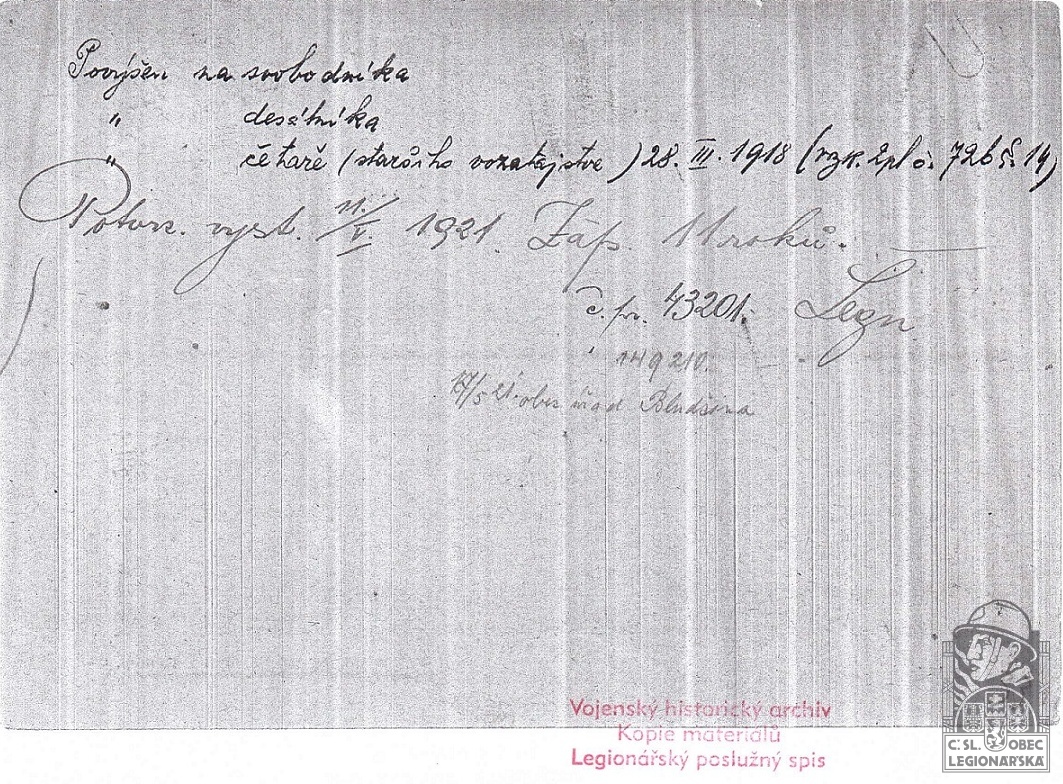 Povýšen na svobodníka
" desátníka
" četaře (staršího vozatajstva) 28. III. 1918 (rzk. 2 pl č. 726 § 14)
Potvrz. vyst. 11./V. 1921. Záp. 11 roků.
č. pr. 43201. Legn
" 149210.
17/5 21. obec úřad
Vojenský historický archiv
Kopie materiálu
Legionářský poslužný spis
Č. SL. OBEC
LEGIONÁŘSKÁ